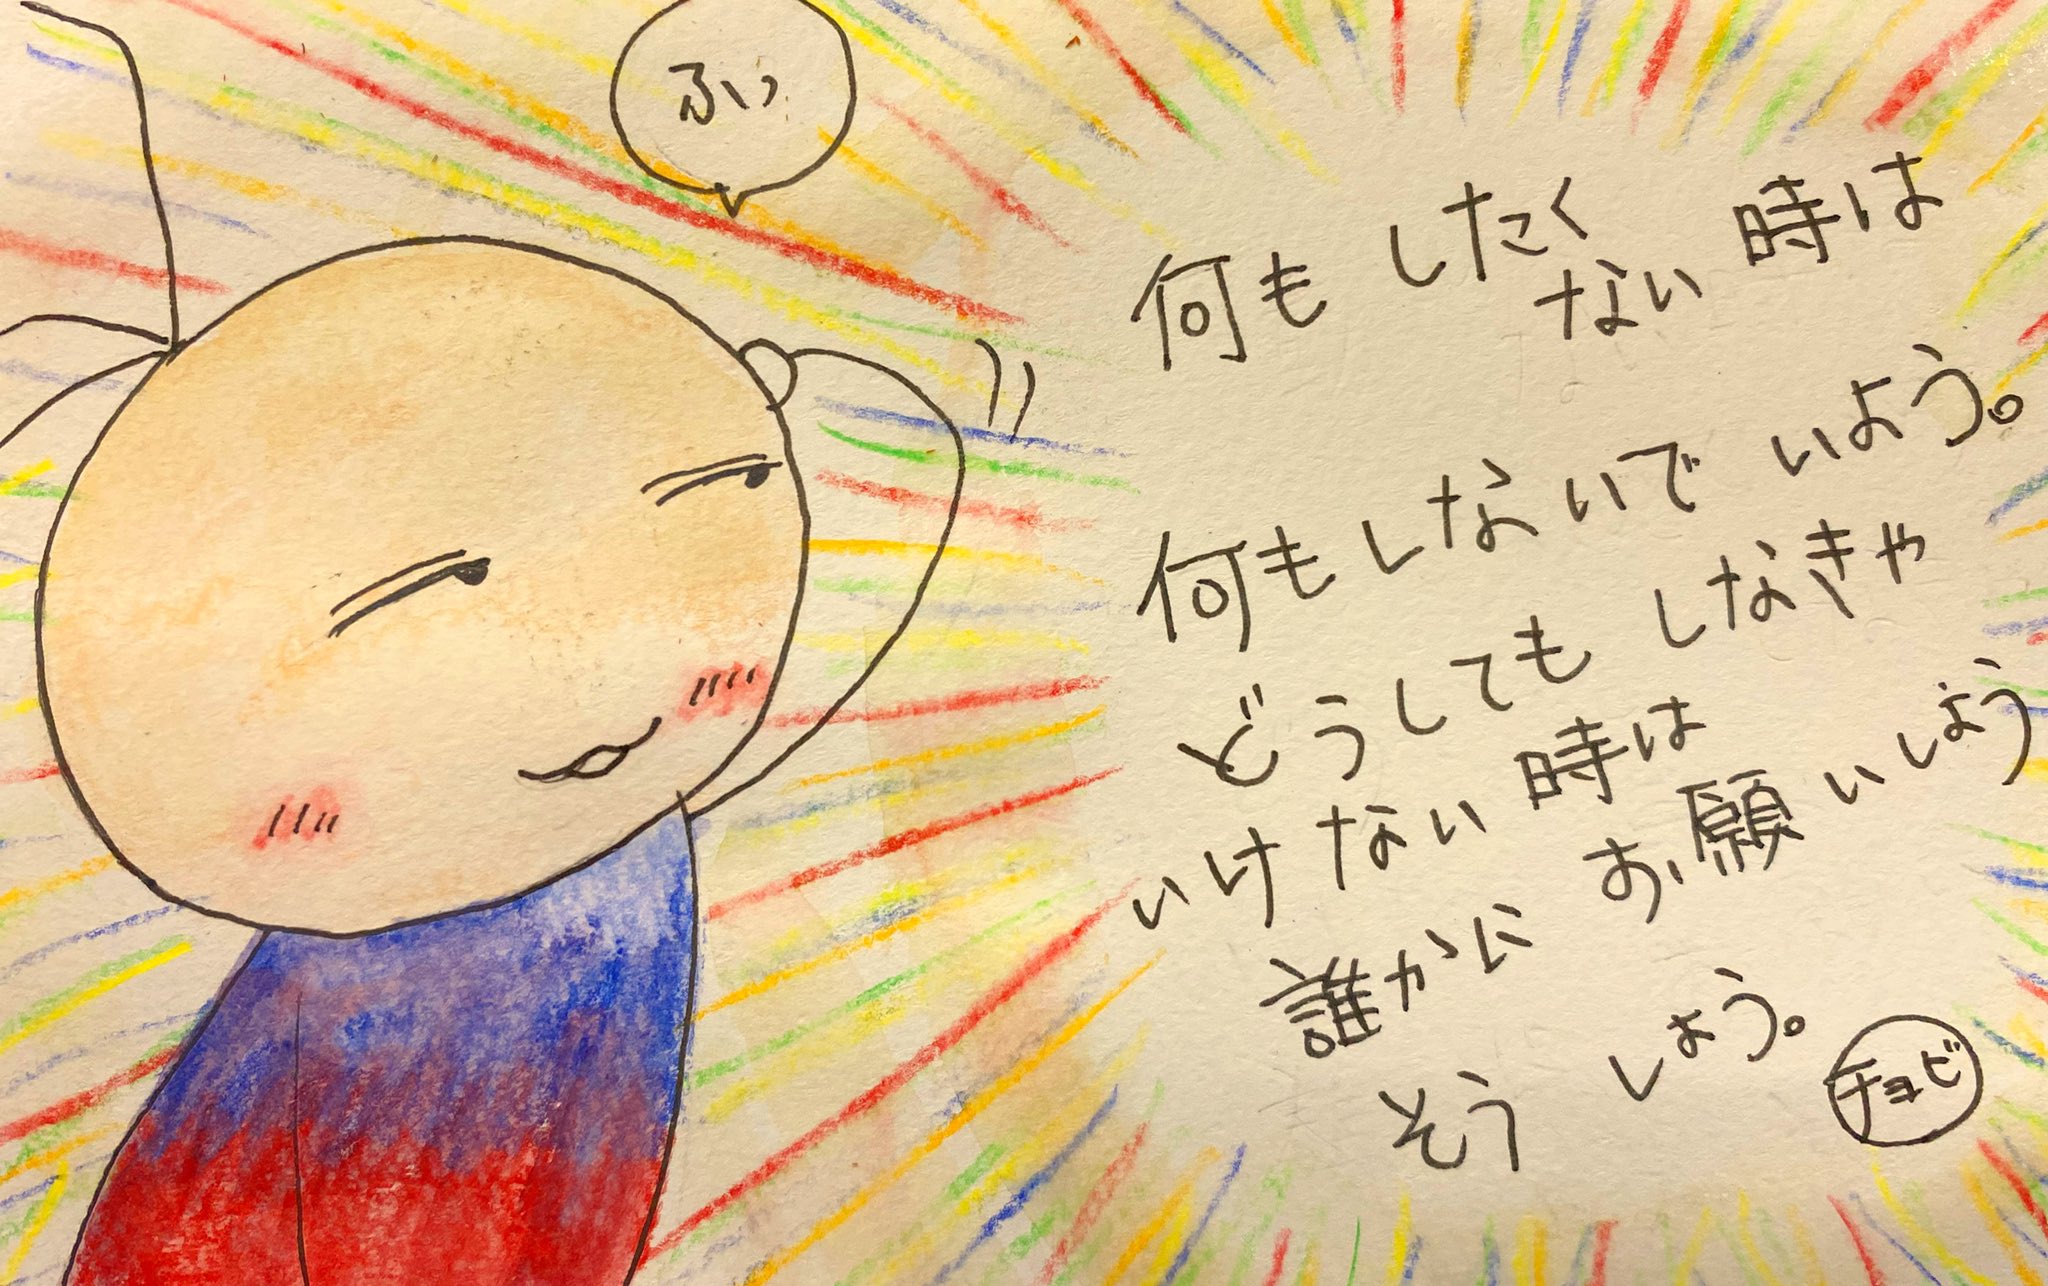 ふっ
何もしたくない時は
何もしないでいよう。
何もしないで
どうしてもしなきゃ
いけない時は
誰かにお願いしよう
そうしよう。
チョビ